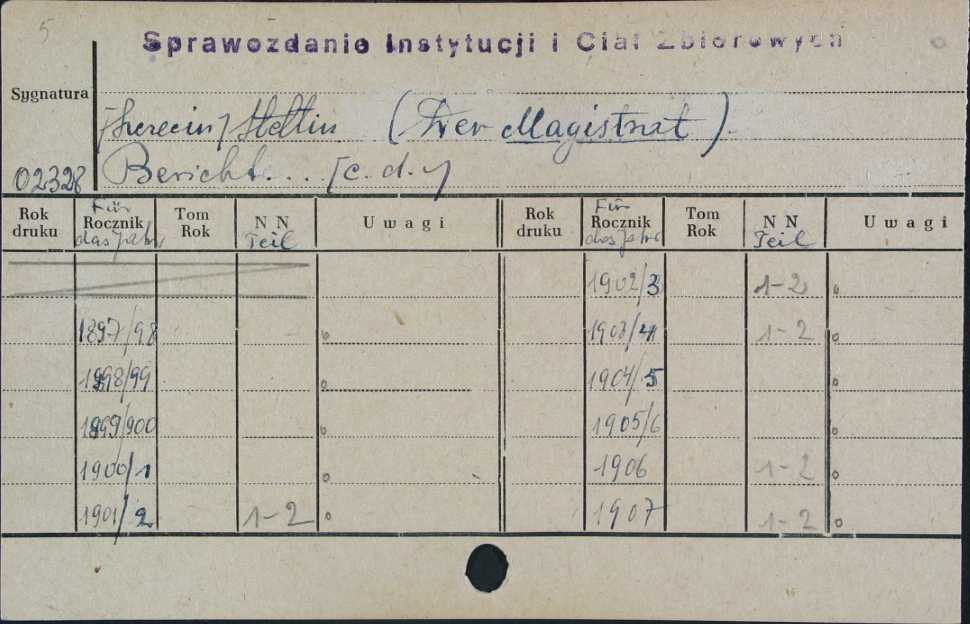 5
Sprawozdanie Instytucji i Ciał Zbiorowych
Sygnatura
[Szczecin] Stettin (Der Magistrat).
02328 Bericht... [c.d.]
Rok druku Für Rocznik das Jahr Tom Rok NN Teil Uwagi Rok druku Für Rocznik das Jahr Tom Rok NN Teil Uwagi
1902/3 1-2
1897/98 1903/4 1-2
1898/99 1904/5
1899/900 1905/6
1900/1 1906 1-2
1901/2 1-2 1907 1-2